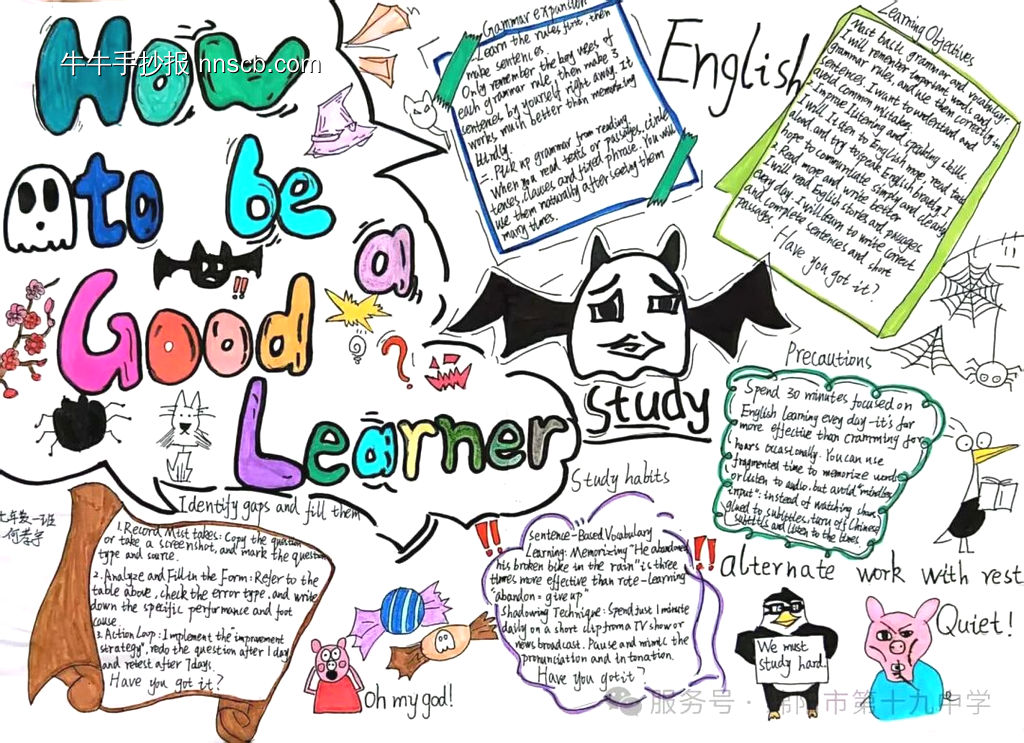 How
to be
a
Good
Learner
牛牛手抄报 hnscb.com
Grammar expansion
Learn the rules first, then
make sentences.
Only remember the key uses of
each grammar rule, then make 3
sentences by yourself right away. It
works much better than memorizing
blindly.
二. Pick up grammar from reading
When you read texts or passages, circle
tenses, clauses and fixed phrase. You will
use them naturally after seeing them
many times.
English
Learning Objectives
Mast back grammar and vocabulary:
I will remember important words and
grammar rules and use them correctly in
sentences. I want to understand and
avoid common mistakes.
2. Improve listening and speaking skills
I will listen to English more, read texts
aloud and try to speak English bravely. I
hope to communicate simply and clearly
3. Read more and write better
I will read English stories and passages
every day. I will learn to write correct
and complete sentences and short
passages.
Have you got it?
Study
Precautions
Spend 30 minutes focused on
English learning every day-it's far
more effective than cramming for
hours occasionally. You can use
fragmented time to memorize words
or listen to audio. but avoid "mindless
input": instead of watching shows
glued to subtitles, turn off Chinese
subtitles and listen to the lines
Identify gaps and fill them
1. Record Mistakes: Copy the question
or take a screenshot, and mark the question
type and source.
2. Analyze and Fill in the Form: Refer to the
table above, check the error type, and write
down the specific performance and foot
cause
3. Action Loop: Implement the "improvement
strategy", redo the question after 1 day
and retest after 7 days.
Have you got it?
七年级一班
Oh my god!
Study habits
Sentence-Based Vocabulary
Learning: Memorizing "He abandoned
his broken bike in the rain" is three
times more effective than rote-learning
"abandon = give up"
Shadowing Technique: Spend just 1 minute
daily on a short clip from a TV show or
news broadcast. Pause and mimic the
pronunciation and intonation.
Have you got it?
alternate work with rest
We must
study hard.
Quiet!
服务号 · 市第十九中学